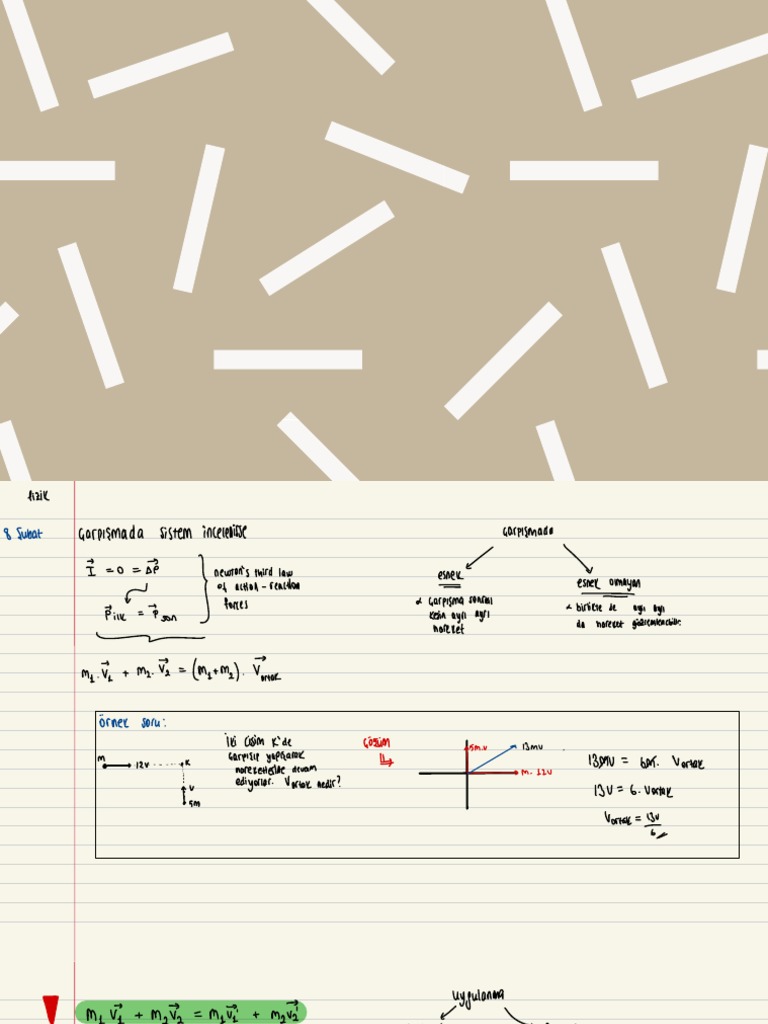 fizik
8 Şubat
Çarpışmada sistem incelenirse
I = 0 = ΔP
P ilk = P son
newton's third law
of action - reaction
forces
m₁.V₁ + m₂.V₂ = (m₁+m₂). V ortak
Çarpışmada
esnek
α Çarpışma sonrası
kesin ayrı ayrı
hareket
esnek olmayan
α birlikte de ayrı ayrı
da hareket gözlemlenebilir.
örnek soru:
m
12v
K
v
5m
İki cisim K'de
çarpışıp yapışarak
hareketlerine devam
ediyorlar. Vortak nedir?
Çözüm
5m.v
13mv
m. 12v
13mv = 6m. Vortak
13v = 6. Vortak
Vortak = 13v
6
!
m₁ V₁ + m₂V₂ = m₁V₁' + m₂V₂'
Uygulanma